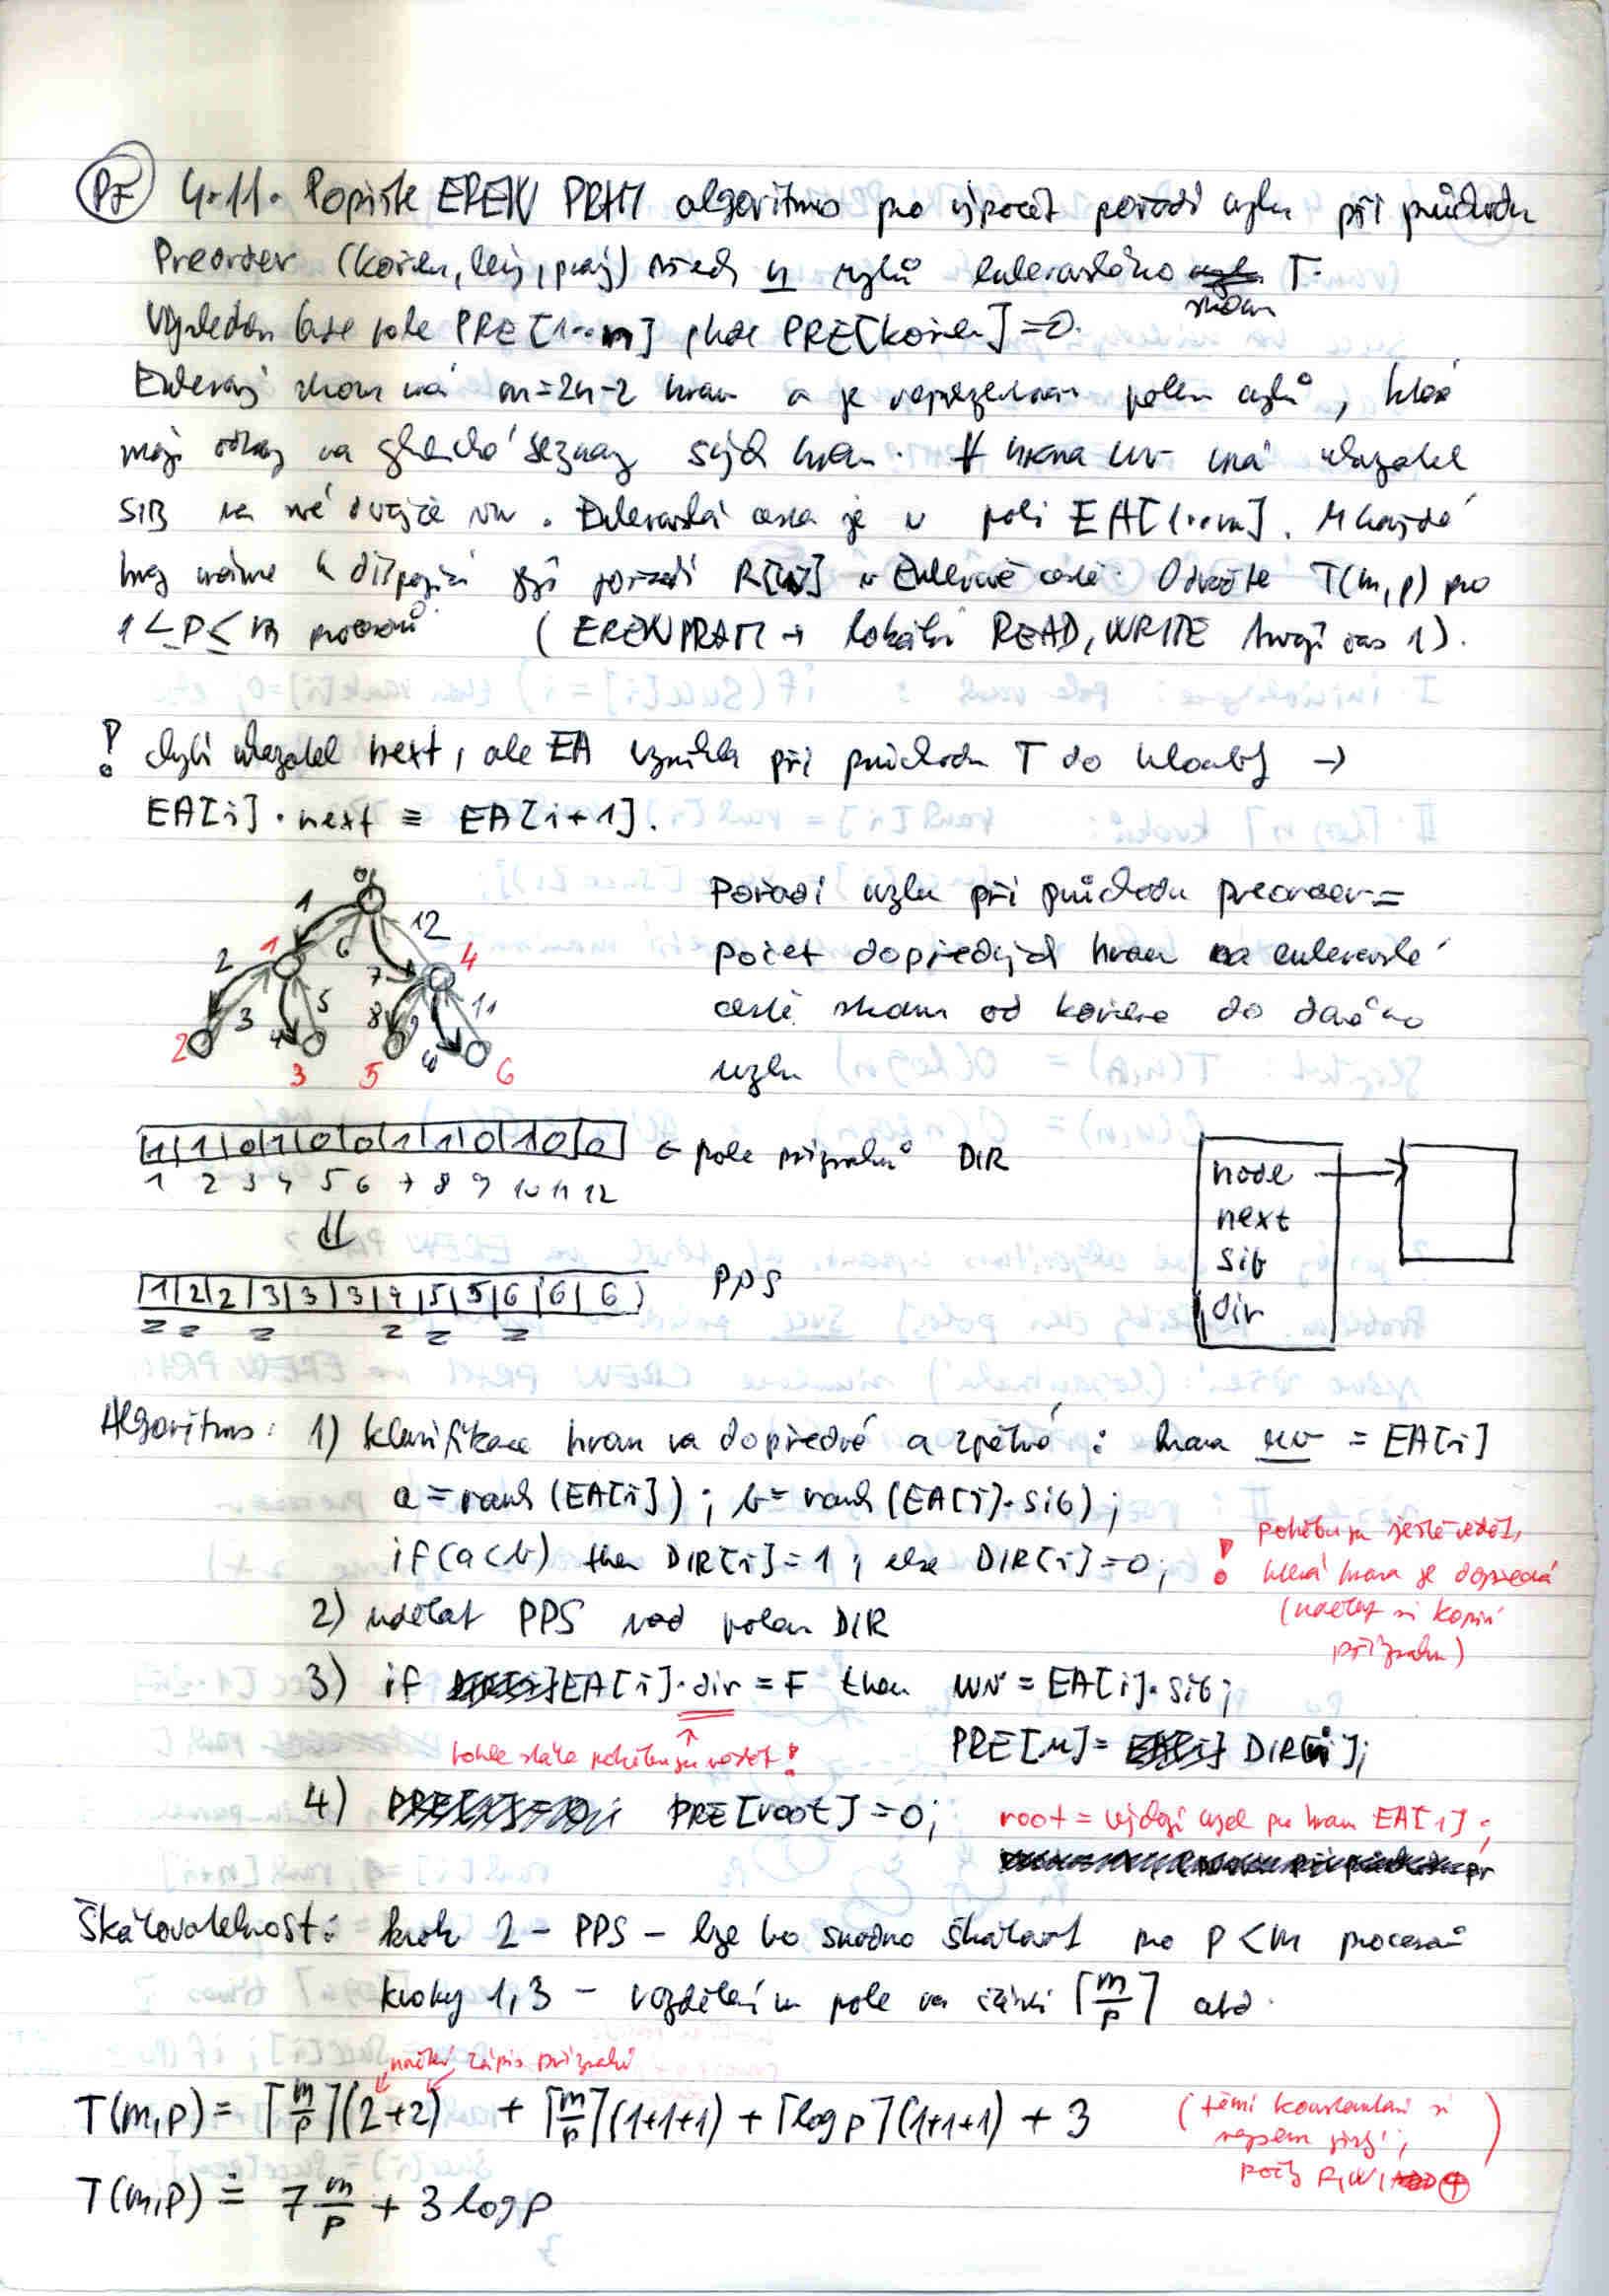 PJ 4.11. Popište EREW PRAM algoritmus pro výpočet pořadí uzlu při průchodu
Preorder (kořen, levý, pravý) všech n uzlů eulerovského T.
stromu
Výsledkem bude pole PRE[1..n], kde PRE[kořen]=0.
Eulerový strom má m=2n-2 hran a je reprezentován polem uzlů, které
mají odkazy na seznamy svých hran. ∀ hrana uv má ukazatel
SIB na své dvojče vu. Eulerovská cesta je v poli EA[1..m]. U každé
hrany máme k dispozici její pořadí R[uv] v Eulerově cestě. Odvoďte T(m,p) pro
1≤p≤m procesorů (EREW PRAM → lokální READ, WRITE trvají čas 1).
! chybí ukazatel next, ale EA vznikla při průchodu T do hloubky →
EA[i].next ≡ EA[i+1].
Pořadí uzlu při průchodu preorder =
počet dopředných hran na eulerovské
cestě stromu od kořene do daného
uzlu
0
1 12
2 1 6 7 4
3 5 8 9 11
2 4 10
3 5 6
1|1|0|1|0|0|1|1|0|1|0|0 ← pole příznaků DIR
1 2 3 4 5 6 7 8 9 10 11 12
⇓
1|2|2|3|3|3|4|5|5|6|6|6 PPS
node
next
sib
dir
Algoritmus: 1) klasifikace hran na dopředné a zpětné: hrana uv = EA[i]
a = rank(EA[i]); b = rank(EA[i].sib);
if (a<b) then DIR[i]=1; else DIR[i]=0;
! potřebuju ještě vědět,
která hrana je dopředná
(udělat si kopii
příznaku)
2) udělat PPS nad polem DIR
3) if EA[i].dir = F then uv = EA[i].sib;
tohle stále potřebuju vědět!
PRE[u] = DIR[i];
4) PRE[root] = 0; root = výchozí uzel pro hranu EA[1];
Škálovatelnost: krok 2 - PPS - lze ho snadno škálovat pro p<m procesorů
kroky 1,3 - rozdělením pole na části ⌈m/p⌉ atd.
načtení, zápis příznaků
T(m,p) = ⌈m/p⌉(2+2) + ⌈m/p⌉(1+1+1) + ⌈log p⌉(1+1+1) + 3
(těmi konstantami si
nejsem jistý,
R,W, ⊕)
T(m,p) ≐ 7 m/p + 3 log p